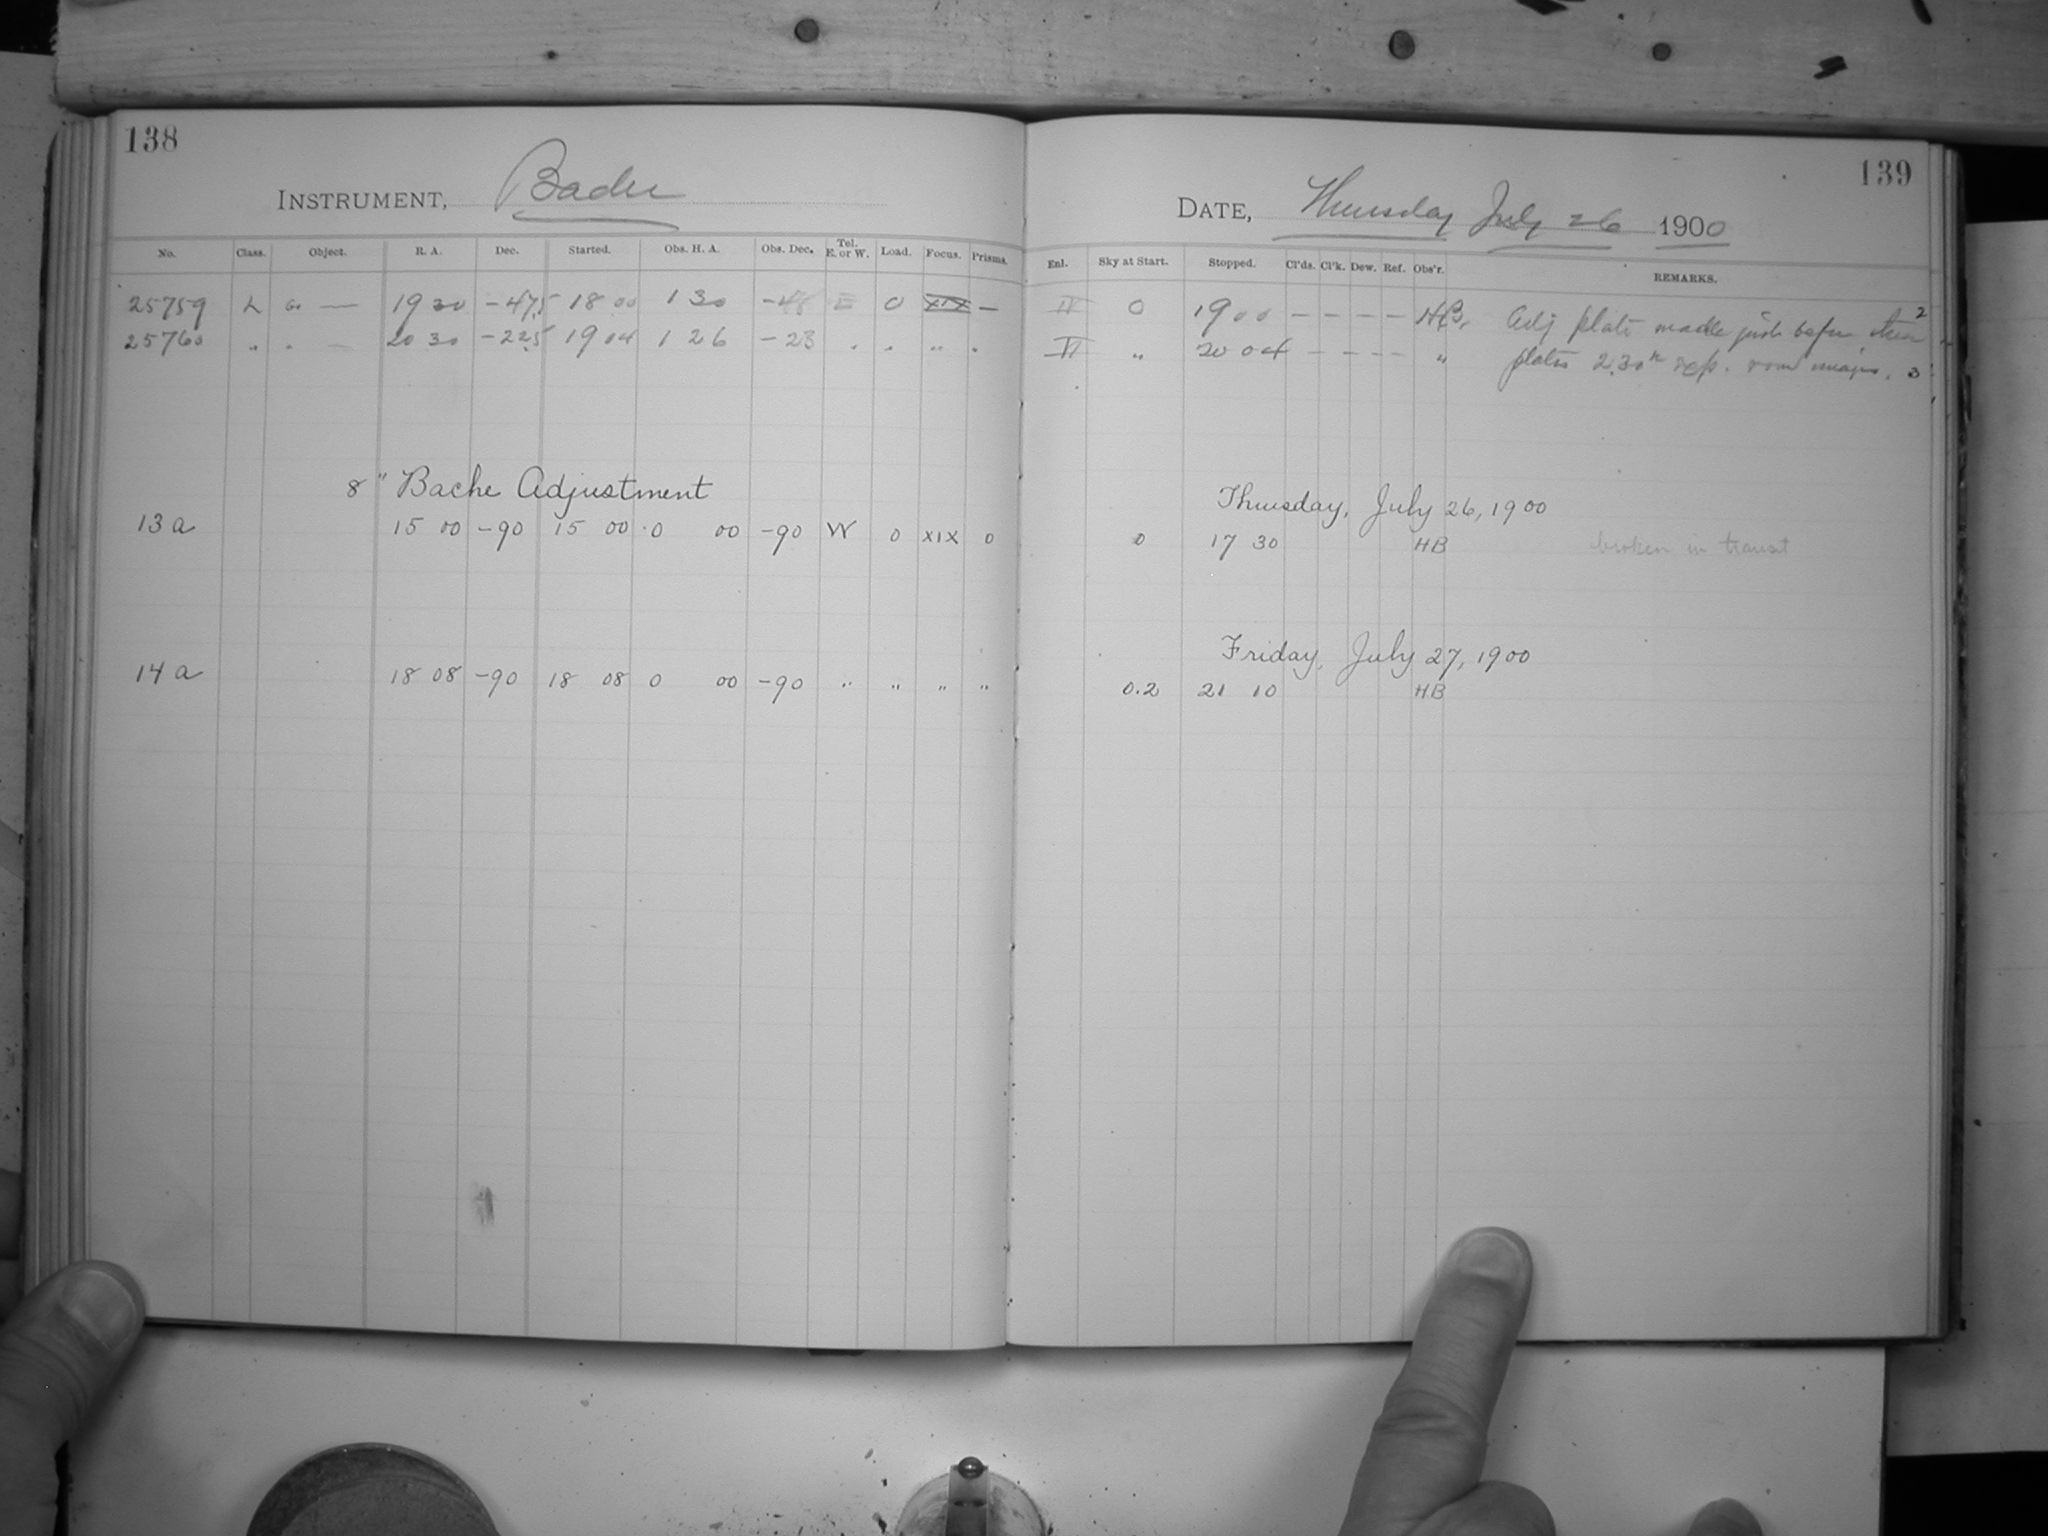 138
INSTRUMENT, Bache
No. Class. Object. R. A. Dec. Started. Obs. H. A. Obs. Dec. Tel. E. or W. Load. Focus. Prisms.
25759 L G. — 19 30 -47.5 18 00 1 30 -48 E 0 XIX —
25760 " " — 20 30 -22.5 19 04 1 26 -23 " " " "
8" Bache Adjustment
13 a 15 00 -90 15 00 0 00 -90 W 0 XIX 0
14 a 18 08 -90 18 08 0 00 -90 " " " "
139
DATE, Thursday July 26 1900
Enl. Sky at Start. Stopped. Cl'ds. Cl'k. Dew. Ref. Obs'r. REMARKS.
0 19 00 — — — — HB. Adj plate made just before these 2
VI " 20 04 — — — — " plates 2.30 3
Thursday, July 26, 1900
0 17 30 HB broken in transit
Friday, July 27, 1900
0.2 21 10 HB